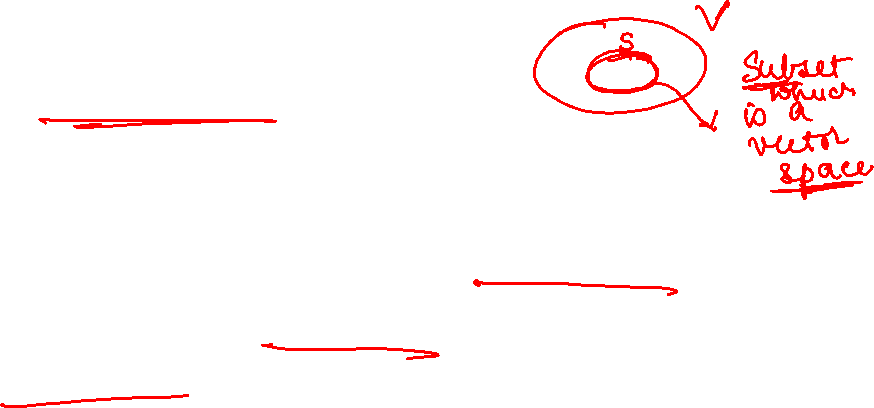 V
S
Subset
which
is a
vector
space